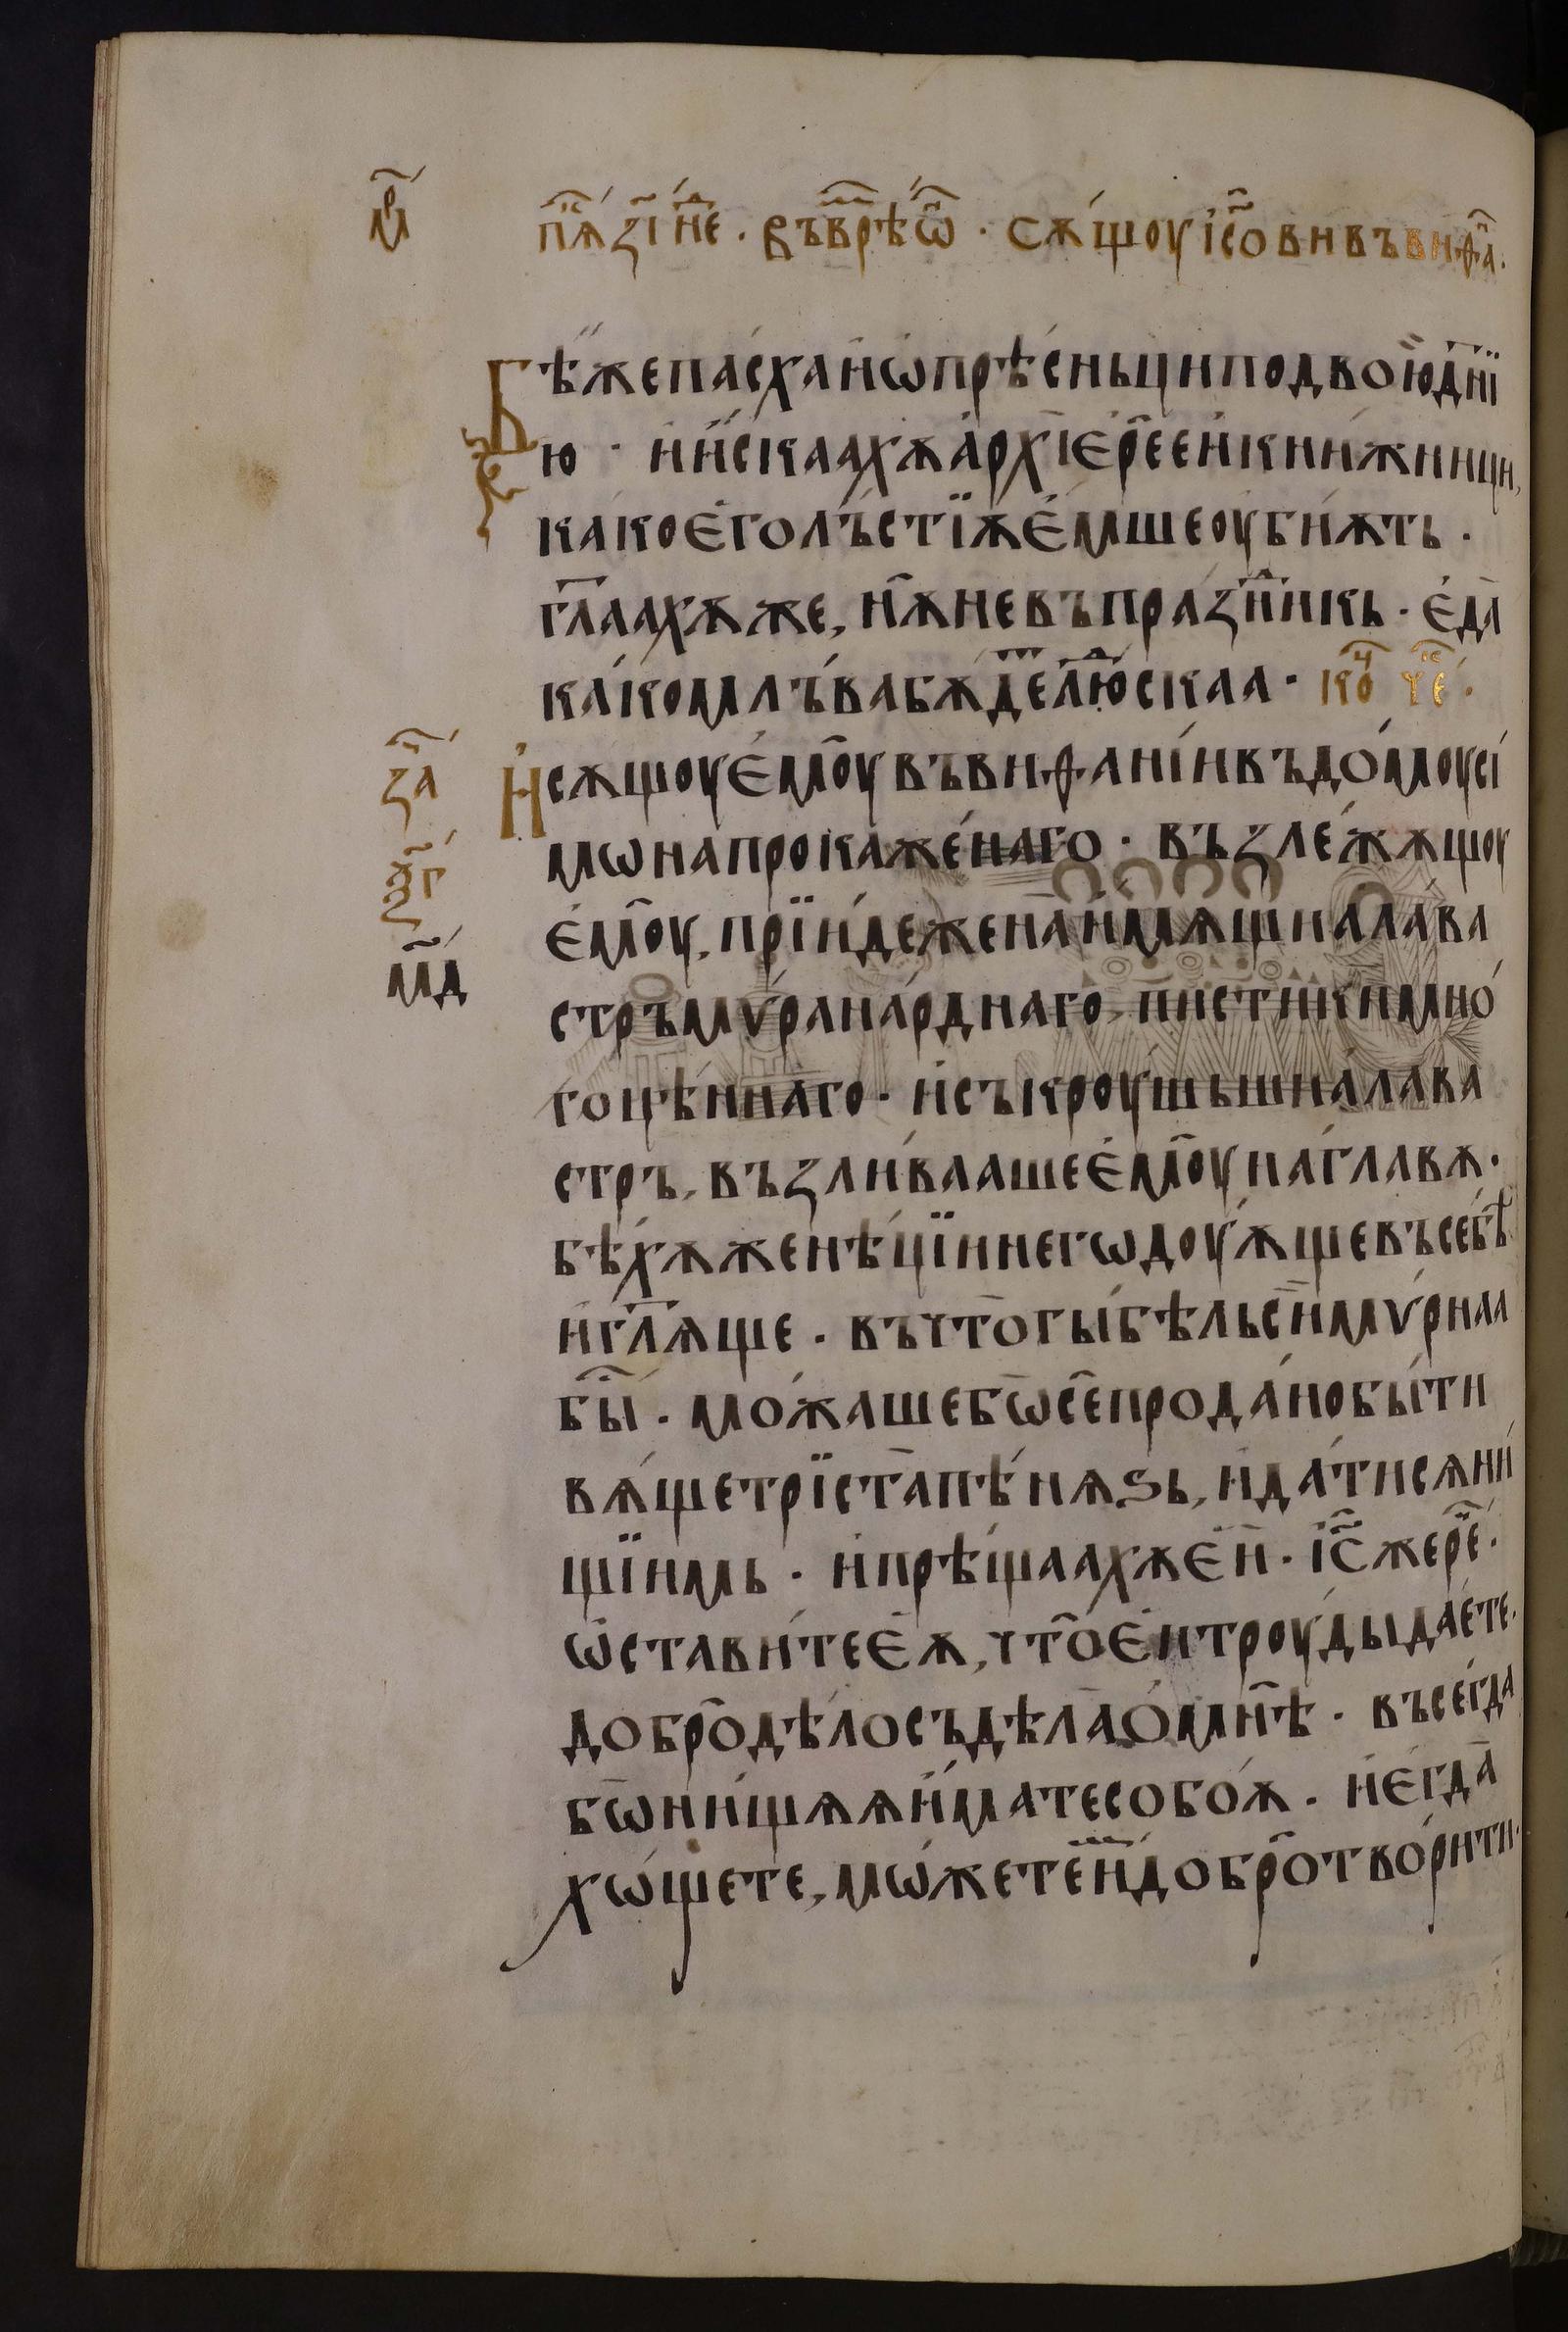 мⷬ҇
пⷦ҇ѧ з҃і нⷣе . въ врⷨѣ ѡⷩ҇ . сѫ́щоу і҆с҃ови въ виѳⷶ .
Бѣ́же пасха и҆ ѡ҆прѣ́сньци по двою̀ д҃нї
ю · и҆ и҆скаахѫ а҆рхїе҆ре҄е и҆ книжници,
како є҆го л̾ъстїѫ є҆мше оубиѫть .
гл҃аахѫ же, н҄ѫ не въ праз́нⷣикь . є҆да̀
ка́ко мл̾ъва бѫдеⷮ лю́ⷣскаа · коⷰ҇ чеⷦ҇ .
заⷱ҇ И҆ сѫщоу є҆мо҄у въ виѳані́и въ до́моу сі
мѡна прокаже́наго · възлежѧщоу
ѯ҃г є҆мо҄у, прїи́де жена̀ и҆мѧщи а҆лава
м҃д
стръ мѵ́ра на́рднаго пистикии мно́
гоцѣ́ннаго · и҆ съкроу́шьши а҆лава
стръ, възли́вааше є҆мо҄у на главѫ ·
бѣ́хѫ же нѣ́цїи негѡдоу́ѫще въ себѣ̀
и҆ гл҃ѧще . въчто̀ гы́бѣль сїѝ мѵ́рнаа
быⷭ҇ . мо́жаше бѡ̀ се҄ продано бы́ти
вѧ́ще трїста̀ пѣ́нѧѕь, и҆ да́тисѧ ни́
щїимь · и҆ прѣщаахѫ є҆и · і҆с҃ же реⷱ҇ .
ѡ҆стави́те є҆ѫ, что҄ є҆и троуды дае́те.
добро҄ дѣ́ло съдѣла̀ о҆ мн҄ѣ · въсегда
бѡ̀ ни́щѫѧ и҆мате собо́ѫ . и҆ є҆гда̀
хѡ́щете, мѡ́жете и҆мⷨ добро҄ твори́ти.